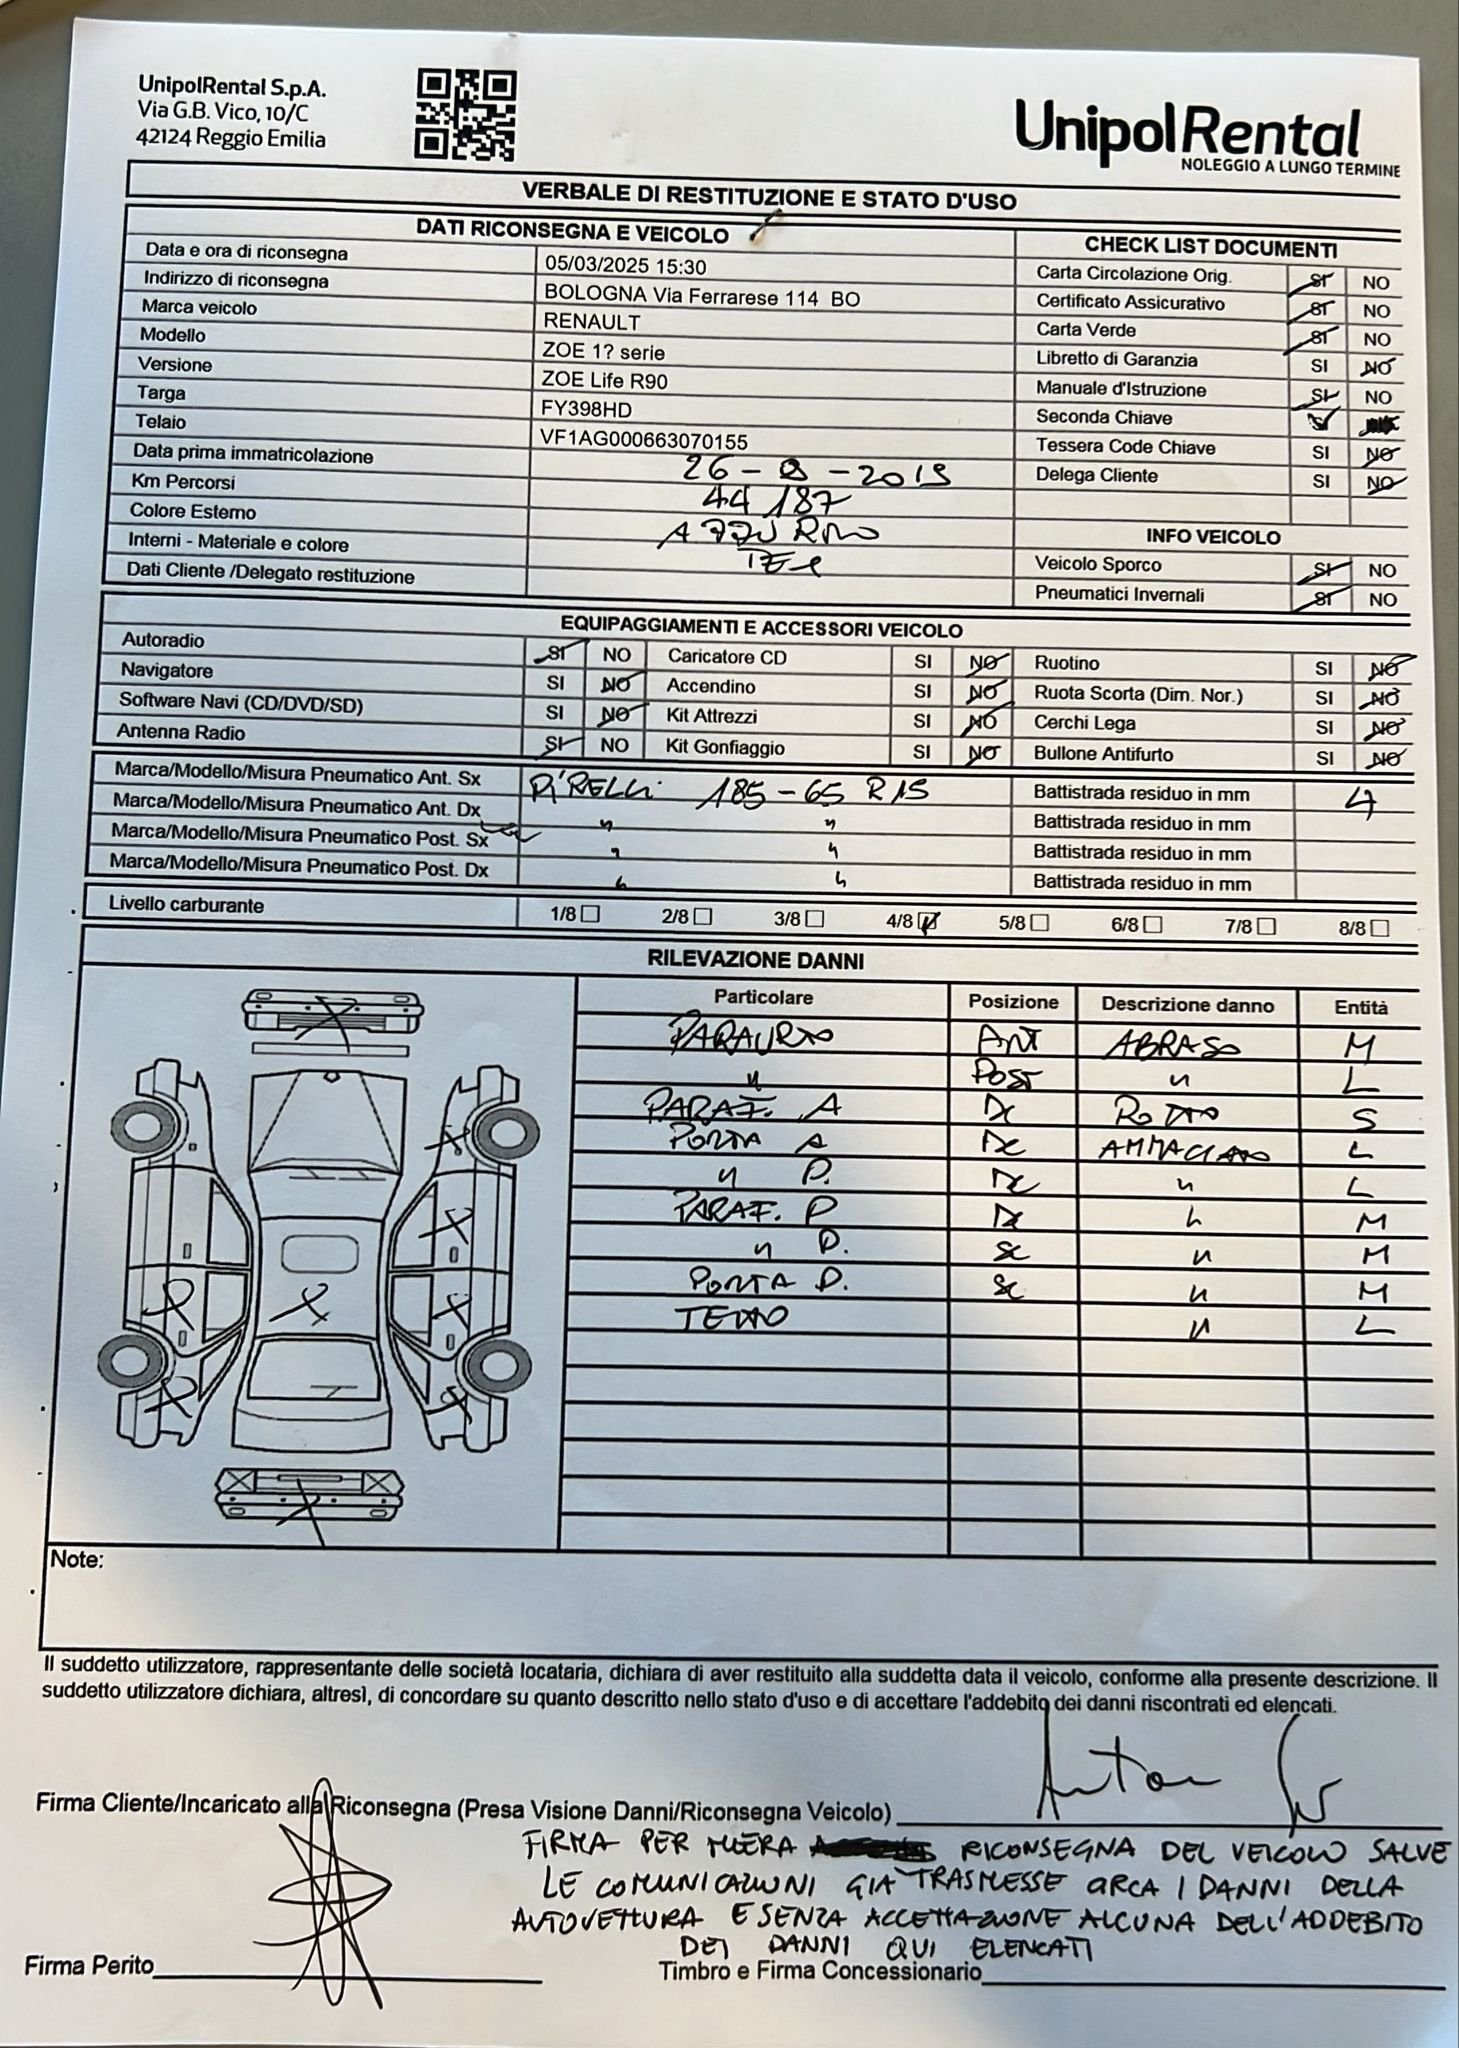 UnipolRental S.p.A.
Via G.B. Vico, 10/C
42124 Reggio Emilia
UnipolRental
NOLEGGIO A LUNGO TERMINE
VERBALE DI RESTITUZIONE E STATO D'USO
DATI RICONSEGNA E VEICOLO
Data e ora di riconsegna 05/03/2025 15:30
Indirizzo di riconsegna BOLOGNA Via Ferrarese 114 BO
Marca veicolo RENAULT
Modello ZOE 1? serie
Versione ZOE Life R90
Targa FY398HD
Telaio VF1AG000663070155
Data prima immatricolazione 26 - - 2019
Km Percorsi 44187
Colore Esterno
Interni - Materiale e colore
Dati Cliente /Delegato restituzione
CHECK LIST DOCUMENTI
Carta Circolazione Orig. SI NO
Certificato Assicurativo SI NO
Carta Verde SI NO
Libretto di Garanzia SI NO
Manuale d'Istruzione SI NO
Seconda Chiave SI
Tessera Code Chiave SI NO
Delega Cliente SI NO
INFO VEICOLO
Veicolo Sporco SI NO
Pneumatici Invernali SI NO
EQUIPAGGIAMENTI E ACCESSORI VEICOLO
Autoradio SI NO Caricatore CD SI NO Ruotino SI NO
Navigatore SI NO Accendino SI NO Ruota Scorta (Dim. Nor.) SI NO
Software Navi (CD/DVD/SD) SI NO Kit Attrezzi SI NO Cerchi Lega SI NO
Antenna Radio SI NO Kit Gonfiaggio SI NO Bullone Antifurto SI NO
Marca/Modello/Misura Pneumatico Ant. Sx PIRELLI 185-65 R15 Battistrada residuo in mm 4
Marca/Modello/Misura Pneumatico Ant. Dx " " Battistrada residuo in mm
Marca/Modello/Misura Pneumatico Post. Sx " " Battistrada residuo in mm
Marca/Modello/Misura Pneumatico Post. Dx " " Battistrada residuo in mm
Livello carburante 1/8 2/8 3/8 4/8 5/8 6/8 7/8 8/8
RILEVAZIONE DANNI
Particolare Posizione Descrizione danno Entità
PARAURTO ANT ABRASO M
" POST " L
PARAF. A Dx ROTTO S
PORTA A Dx AMMACCATO L
" P. Dx " L
PARAF. P Dx " M
" P. Sx " M
PORTA P. Sx " M
TETTO " L
Note:
Il suddetto utilizzatore, rappresentante delle società locataria, dichiara di aver restituito alla suddetta data il veicolo, conforme alla presente descrizione. Il
suddetto utilizzatore dichiara, altresì, di concordare su quanto descritto nello stato d'uso e di accettare l'addebito dei danni riscontrati ed elencati.
Firma Cliente/Incaricato alla Riconsegna (Presa Visione Danni/Riconsegna Veicolo)
FIRMA PER MERA RICONSEGNA DEL VEICOLO SALVE
LE COMUNICAZIONI GIA TRASMESSE CIRCA I DANNI DELLA
AUTOVETTURA E SENZA ACCETTAZIONE ALCUNA DELL'ADDEBITO
DEI DANNI QUI ELENCATI
Firma Perito
Timbro e Firma Concessionario